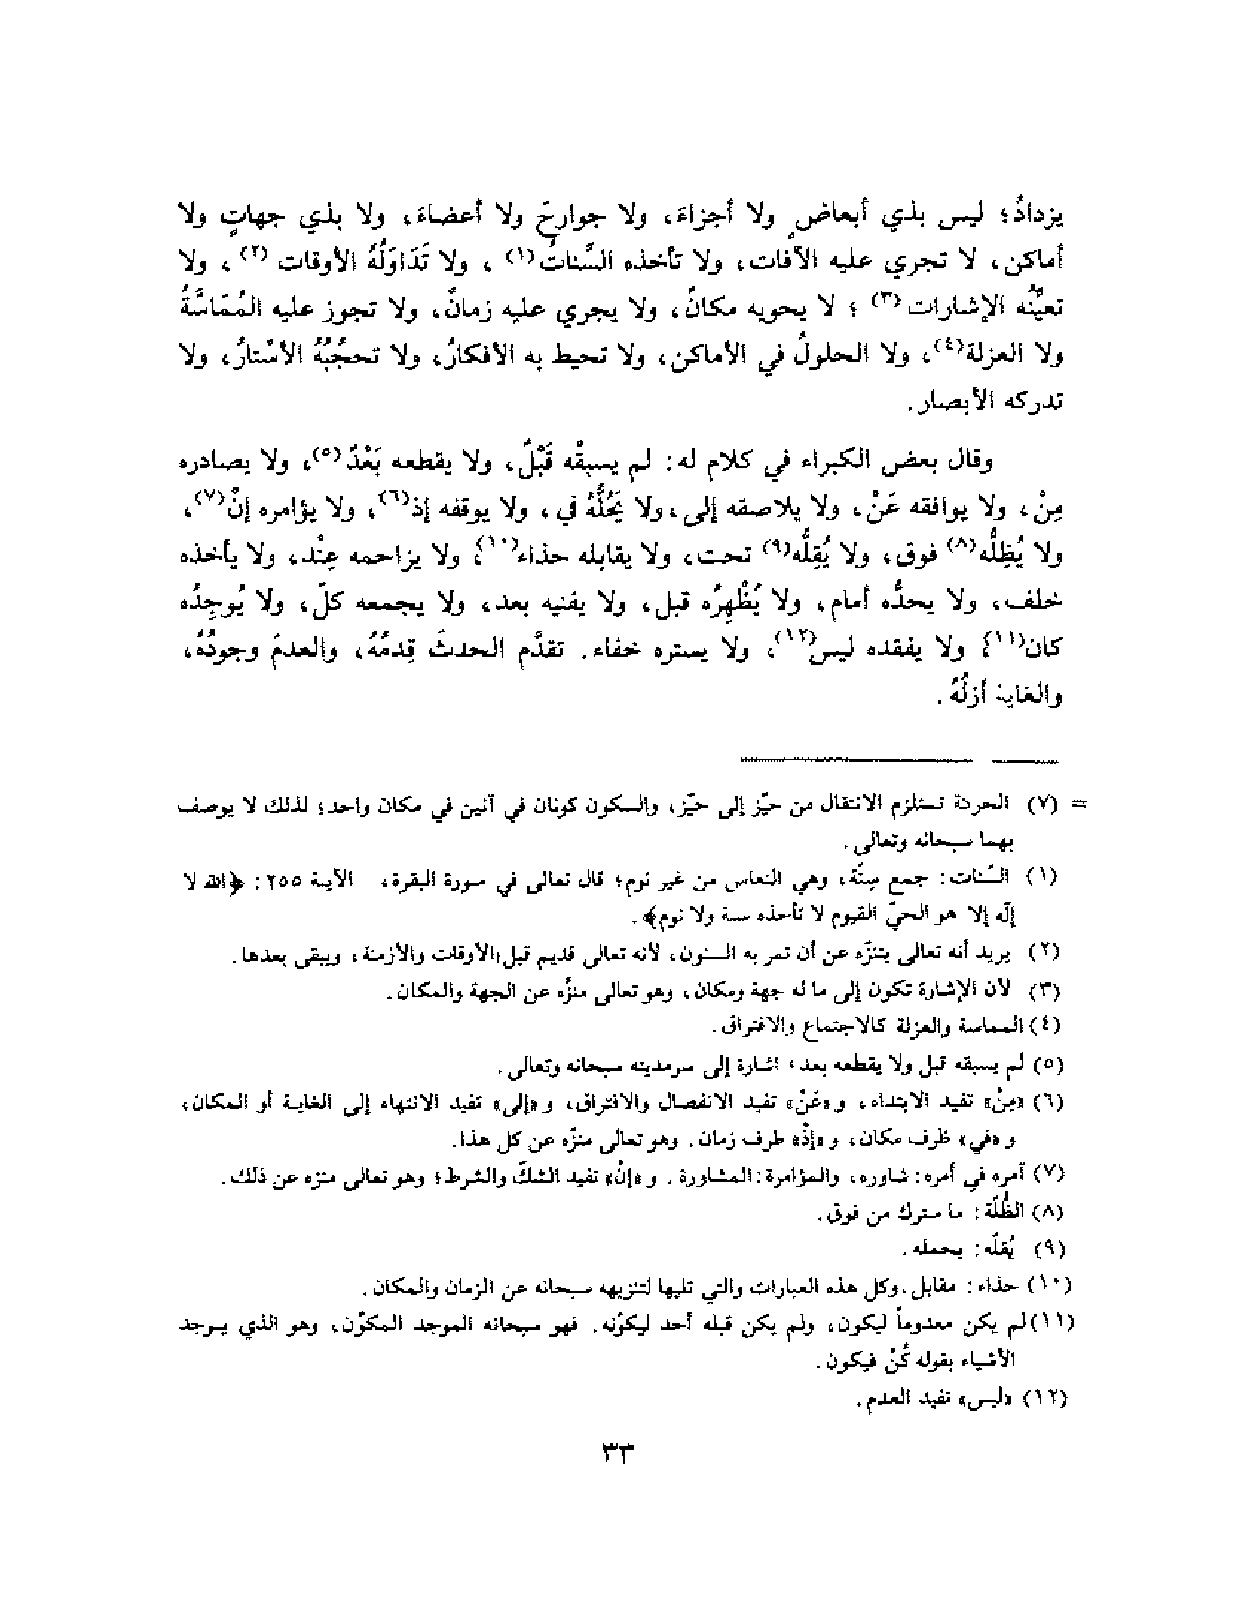 يزدادُ؛ ليس بذي أبعاضٍ ولا أجزاء، ولا جوارحَ ولا أعضاءَ، ولا بذي جهاتٍ ولا
أماكن، لا تجري عليه الآفات، ولا تأخذه السِّناتُ(١) ، ولا تَدَاوَلُهُ الأوقات (٢) ، ولا
تعيِّنُه الإشارات (٣) ؛ لا يحويه مكانٌ، ولا يجري عليه زمانٌ، ولا تجوز عليه المُمَاسَّةُ
ولا العزلة(٤)، ولا الحلولُ في الأماكن، ولا تحيط به الأفكارُ، ولا تحجُبُهُ الأستارُ، ولا
تدركه الأبصار.
وقال بعض الكبراء في كلام له: لم يسبقْه قَبْلٌ، ولا يقطعه بَعْدٌ(٥)، ولا يصادره
مِنْ، ولا يوافقه عَنْ، ولا يلاصقه إلى، ولا يَحُلُّهُ في، ولا يوقفه إذ(٦)، ولا يؤامره إنْ(٧)،
ولا يُظِلُّه(٨) فوق، ولا يُقِلُّه(٩) تحت، ولا يقابله حذاء(١٠)، ولا يزاحمه عِنْد، ولا يأخذه
خلف، ولا يحدُّه أمام، ولا يُظْهِرُه قبل، ولا يفنيه بعد، ولا يجمعه كلّ، ولا يُوجِدُه
كان(١١) ولا يفقده ليس(١٢)، ولا يستره خفاء. تقدَّم الحدثَ قِدمُهُ، والعدمَ وجودُهُ،
والغاية أزلُهُ .
= (٧) الحركة تستلزم الانتقال من حيّز إلى حيّز، والسكون كونان في آنين في مكان واحد؛ لذلك لا يوصف
بهما سبحانه وتعالى.
(١) السِّنات: جمع سِنَة، وهي النعاس من غير نوم؛ قال تعالى في سورة البقرة، الآية ٢٥٥: ﴿الله لا
إلٰه إلا هو الحيّ القيوم لا تأخذه سنة ولا نوم﴾.
(٢) يريد أنه تعالى يتنزّه عن أن تمر به السنون، لأنه تعالى قديم قبل الأوقات والأزمنة، ويبقى بعدها.
(٣) لأن الإشارة تكون إلى ما له جهة ومكان، وهو تعالى منزّه عن الجهة والمكان.
(٤) المماسة والعزلة كالاجتماع والافتراق.
(٥) لم يسبقه قبل ولا يقطعه بعد، اشارة إلى سرمديته سبحانه وتعالى.
(٦) «مِنْ» تفيد الابتداء، و«عَنْ» تفيد الانفصال والافتراق، و «إلى» تفيد الانتهاء إلى الغاية أو المكان،
و «في» ظرف مكان، و «إذْ» ظرف زمان. وهو تعالى منزّه عن كل هذا.
(٧) آمره في أمره: شاوره، والمؤامرة: المشاورة. و «إنْ» تفيد الشكّ والشرط؛ وهو تعالى منزه عن ذلك.
(٨) الظُّلّة: ما سترك من فوق.
(٩) يُقلّه: يحمله.
(١٠) حذاء: مقابل. وكل هذه العبارات والتي تليها لتنزيهه سبحانه عن الزمان والمكان.
(١١) لم يكن معدوماً ليكون، ولم يكن قبله أحد ليكوّنه. فهو سبحانه الموجد المكوّن، وهو الذي يوجد
الأشياء بقوله كُنْ فيكون.
(١٢) «ليس» تفيد العدم.
٣٣